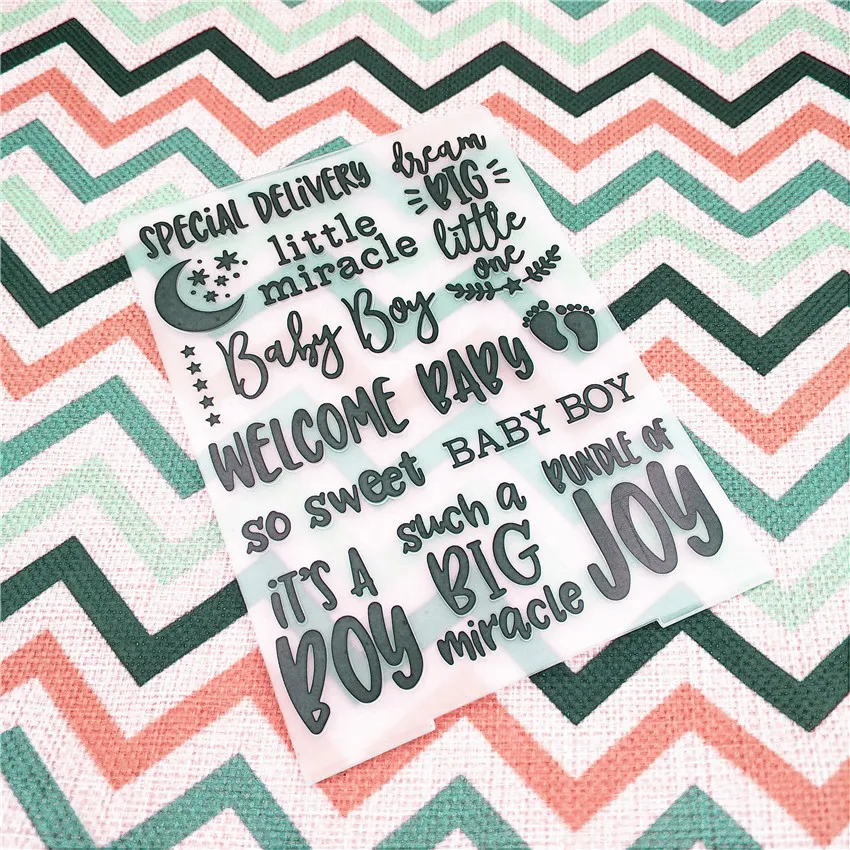 SPECiAL DELiVERY
dream
BIG
little
one
little
miracle
Baby Boy
WELCOME BABY
BABY BOY
so sweet
BUNDLE OF
JOY
such a
BIG
miracle
iT'S A
BOY